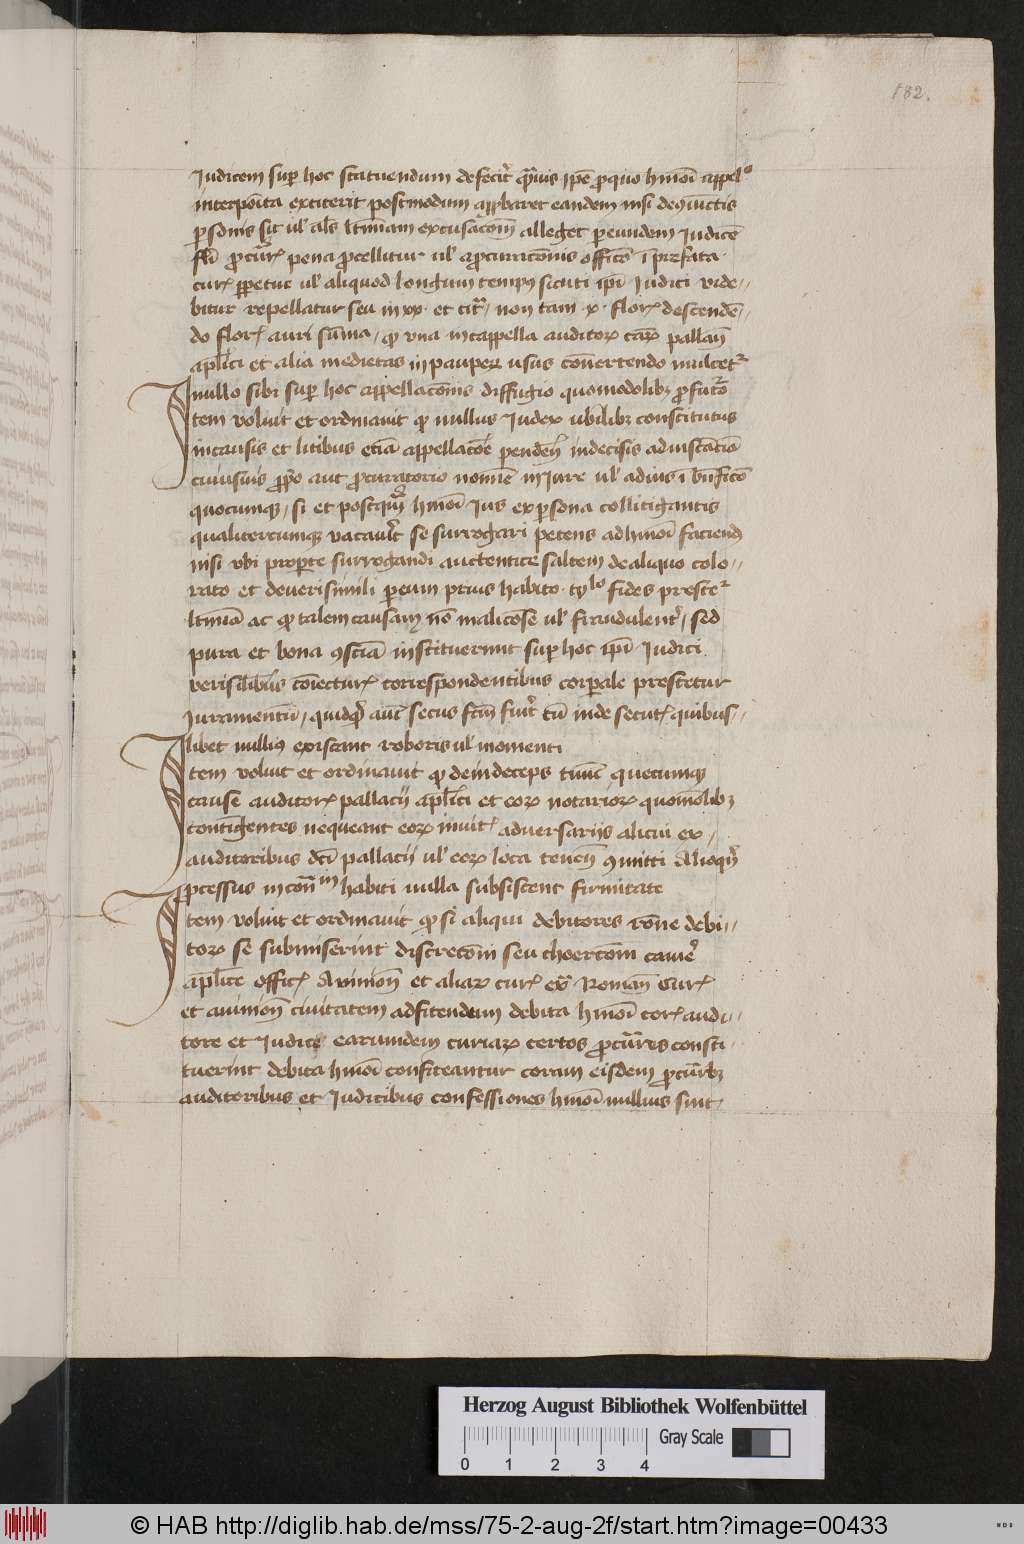 182.
Iudicem sup hoc statuendum defecit̉ ipē ꝓquo hmōi appelo
interpōita extiterit postmodum appbaret eandem nisi de
ꝑsonis sit ul̉ als ltīmam excusacōm alleget ꝑ eundem Iudicē
pena ul̉ officō ī prefata
cur̉ ꝑpetue ul̉ aliquod longum tempus sicuti ipī Iudici vide//
bitur repellatur seu in xx. et non tam x. flor̉ descendē//
do flor̉ auri sūma / ꝙ vna in cappella auditoꝝ pallacij
aplīci et alia medietas in pauperū usus cōuertendo mulcet̉
nullo sibi sup hoc appellacōnis diffugio quomodolibꝫ
Item voluit et ordinauit ꝙ nullus Iudex ubilibꝫ constitutus
in causis et litibus etiā appellacōe pendēn indecisis ad instanciā
cuiusuis ꝓpo aut ꝓcuratorio nomīe in Iure ul̉ ad ius ī bn̄ficō
quocumqꝫ / si et postqꝫ hmōi Ius ex ꝑsona collitigantis
qualitercumqꝫ vacauīt se surrogari petens ad hmōi faciend
nisi vbi pro parte surrogandi auctentice saltem de aliquo colo//
rato et deuerisimili ꝑ eum prius habito tylo fides prestet̉
ltīma ac ꝙ talem causam nō maliciose ul̉ fraudulent̉ / sed
pura et bona ꝯsciā instituerunt sup hoc ipī Iudici
verisilibus cōiectur̉ correspondentibus corꝑale prestetur
Iuramentū / quidqd̉ aut̄ secus fcm̄ fuit̉ tū inde secut̉ quibus//
libet nullius existant roboris ul̉ momenti
Item voluit et ordinauit ꝙ deindeceps tunc quecumqꝫ
cause auditor̉ pallacij aplīci et eoꝝ notarioꝝ quomōlibꝫ
contīgentes nequeant eoꝝ inuit̉ aduersarijs alicui ex /
auditoribus dcī pallacij ul̉ eoꝝ loca tenen̄ ꝯmitti Alioqn̉
ꝓcessus in habiti nulla subsistent firmitate
Item voluit et ordinauit ꝙ si aliqui debitores rōne debi//
toꝝ se submiserint discrecōni seu choercōni camē
aplīce offic̉ Auinion̄ et aliaꝝ cur̉ ex̄ Roman̄ Cur̉
et auinion̄ ciuitatem ad fitendum debita hmōi cor̉ audi//
tore et Iudice earumdem curiaꝝ certos ꝓcūres consti//
tuerint debita hmōi confiteantur coram eisdem ꝓcūrbꝫ
auditoribus et Iudicibus confessiones hmōi nullius sint /
Herzog August Bibliothek Wolfenbüttel
0 1 2 3 4
Gray Scale
© HAB http://diglib.hab.de/mss/75-2-aug-2f/start.htm?image=00433